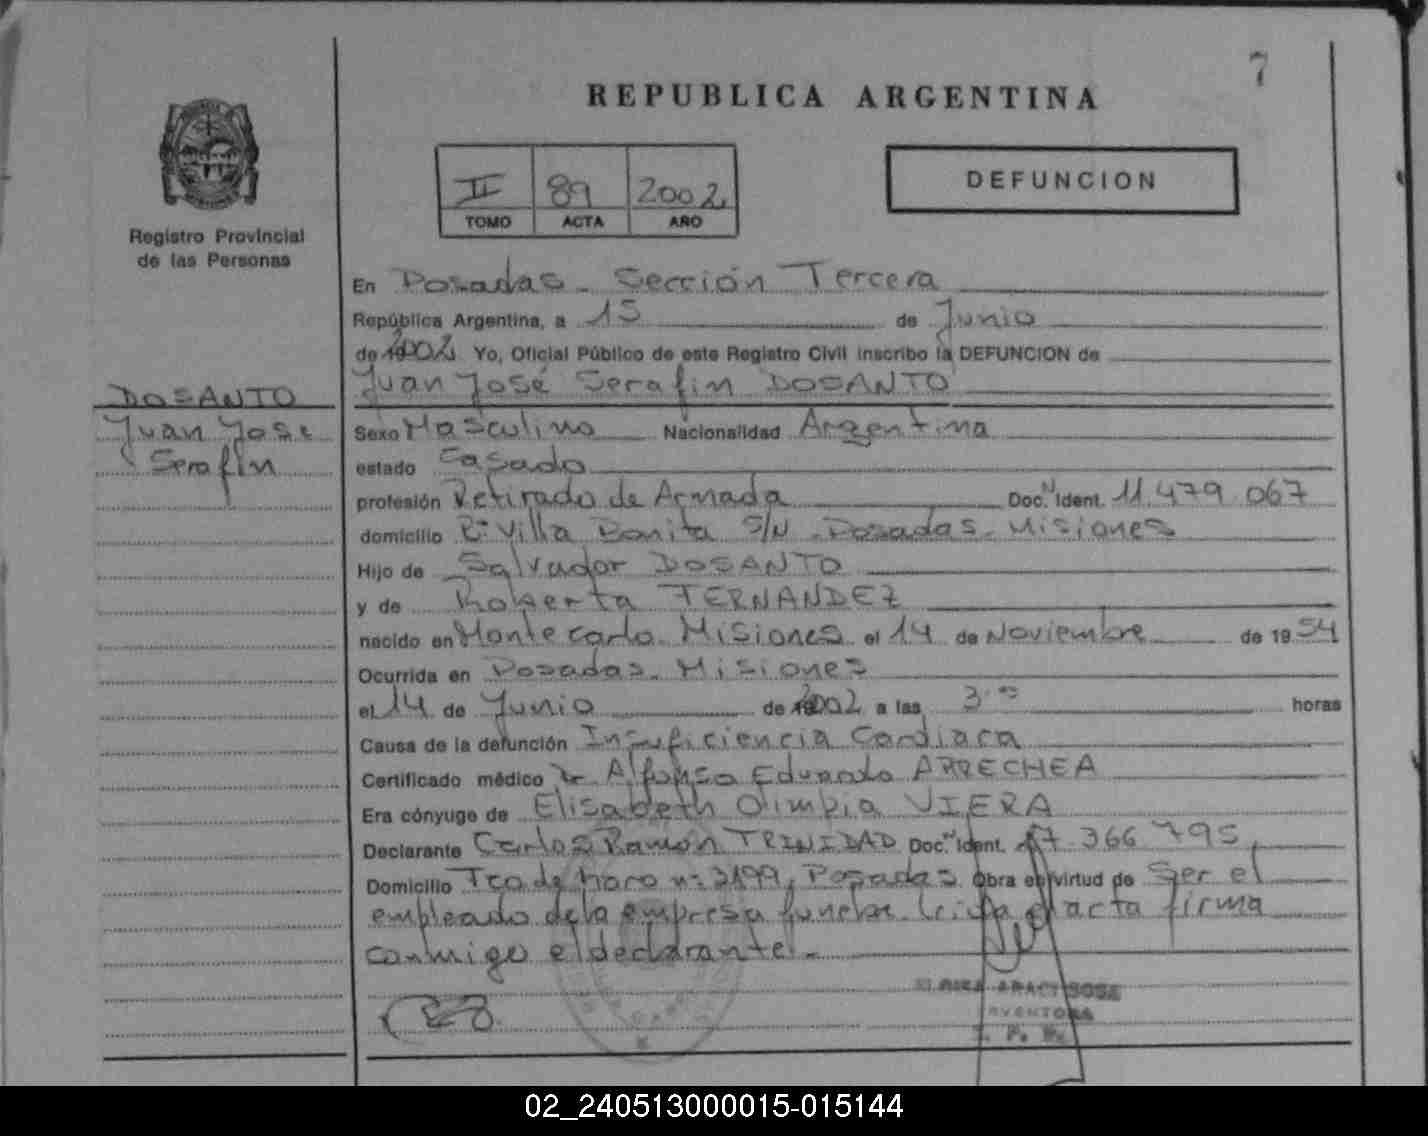 7
REPUBLICA ARGENTINA
II 89 2002
TOMO ACTA AÑO
DEFUNCION
Registro Provincial
de las Personas
En Posadas - Sección Tercera
República Argentina, a 15 de Junio
de 2002 Yo, Oficial Público de este Registro Civil inscribo la DEFUNCION de
Juan José Serafin DOSANTO
DOSANTO
Juan Jose
Serafin
Sexo Masculino Nacionalidad Argentina
estado Casado
profesión Retirado de Armada Doc. N. Ident. 11.479.067
domicilio B° Villa Bonita S/N - Posadas - Misiones
Hijo de Salvador DOSANTO
y de Roberta FERNANDEZ
nacido en Montecarlo Misiones el 14 de Noviembre de 1954
Ocurrida en Posadas - Misiones
el 14 de Junio de 2002 a las 3.00 horas
Causa de la defunción Insuficiencia Cardiaca
Certificado médico Dr Alfonso Eduardo ARRECHEA
Era cónyuge de Elisabeth Olimpia VIERA
Declarante Carlos Ramón TRINIDAD Doc. N. Ident. 17.366.795
Domicilio Fco de Haro n° 3199, Posadas Obra en virtud de Ser el
empleado de la empresa funebre. Leida el acta firma
conmigo el declarante.-
ARACI SOSA
02_240513000015-015144